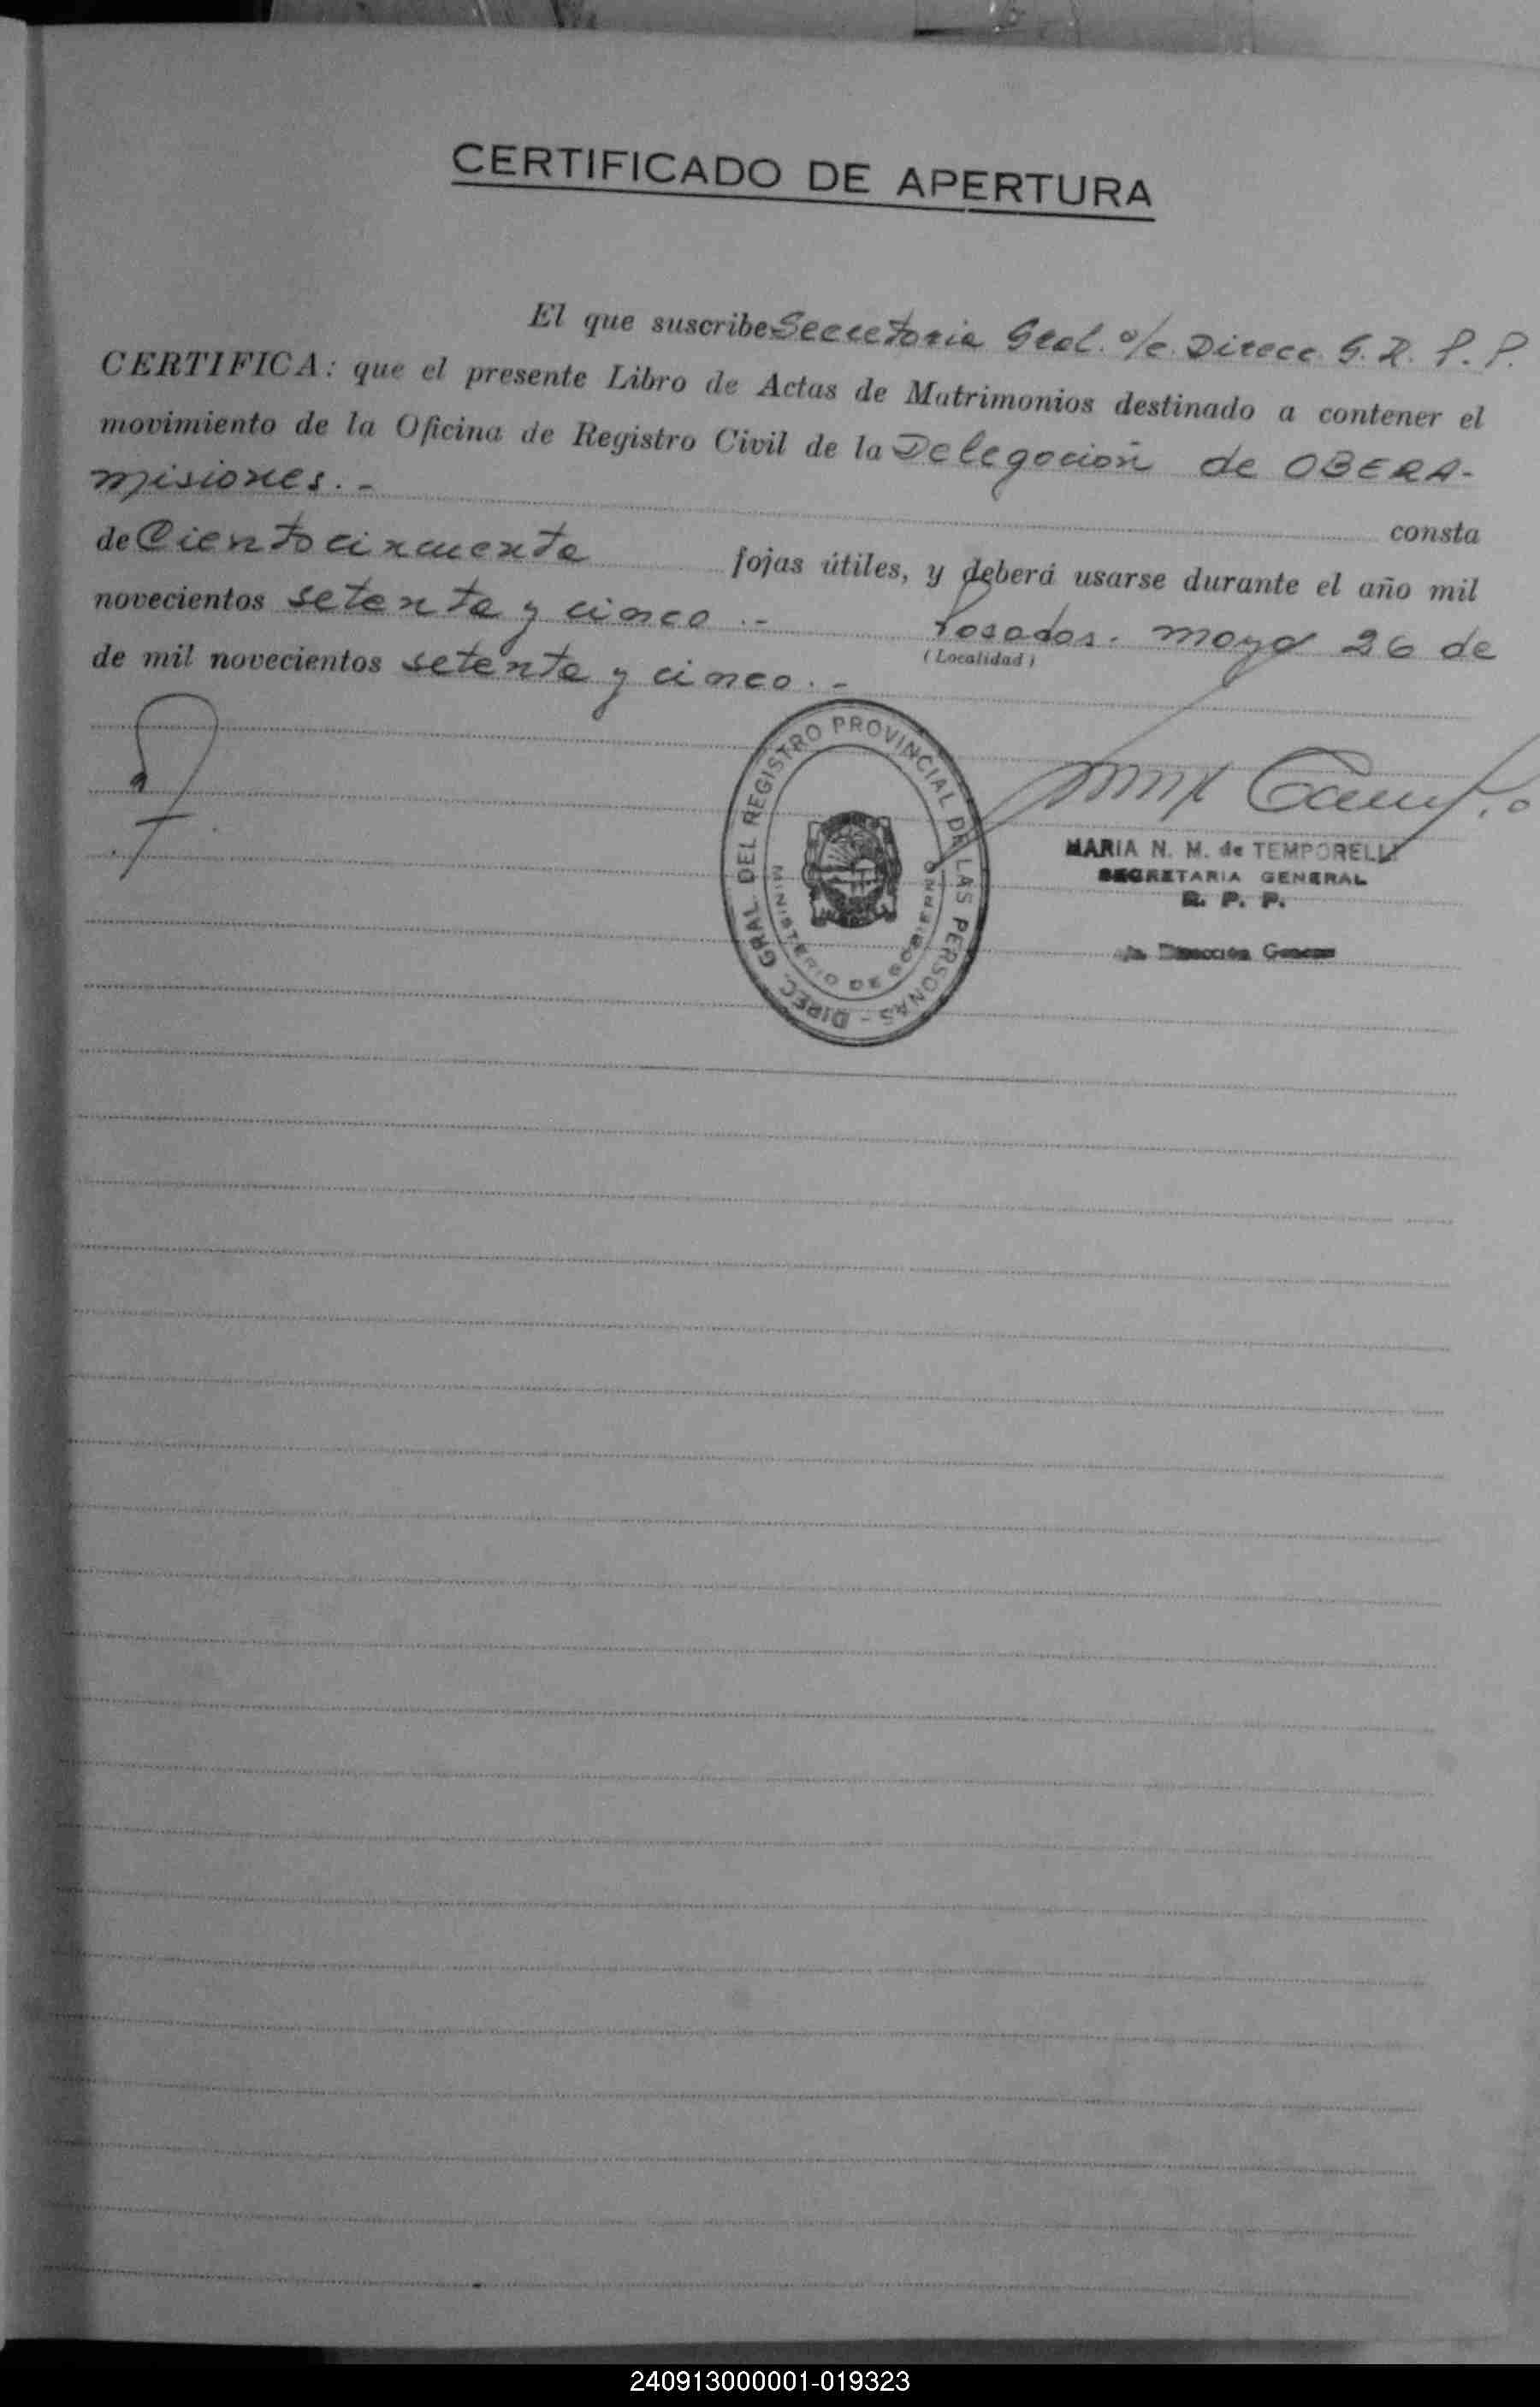 CERTIFICADO DE APERTURA
El que suscribe Secretaria Gral. a/c. Direcc. G. R. P. P.
CERTIFICA: que el presente Libro de Actas de Matrimonios destinado a contener el
movimiento de la Oficina de Registro Civil de la Delegación de OBERA-
misiones. - consta
de Ciento cincuenta fojas útiles, y deberá usarse durante el año mil
novecientos setenta y cinco .- Posadas. mayo 26 de
(Localidad)
de mil novecientos setenta y cinco. -
DIREC. GRAL. DEL REGISTRO PROVINCIAL DE LAS PERSONAS -
MINISTERIO DE GOBIERNO
MARIA N. M. de TEMPORELLI
SECRETARIA GENERAL
R. P. P.
a/c. Dirección General
240913000001-019323